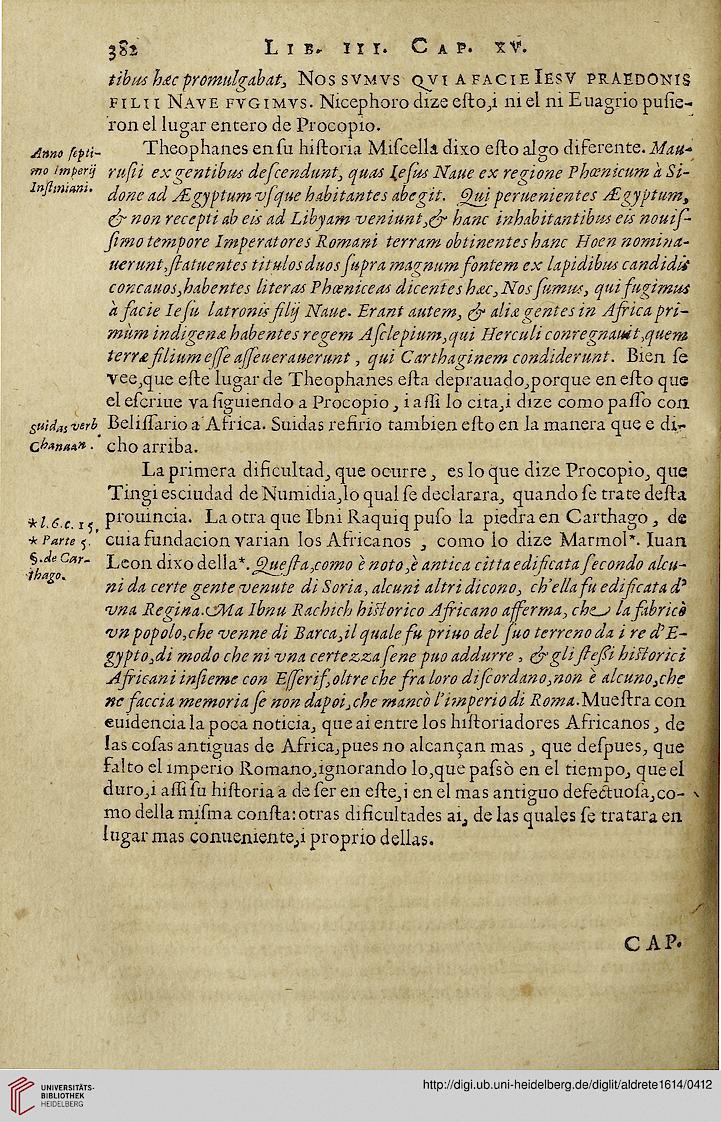 382 LIB. III. CAP. XV.
tibus hæc promulgabat, NOS SVMVS QVI A FACIE IESV PRAEDONIS
FILII NAVE FVGIMVS. Nicephoro dize eſto,i ni el ni Euagrio puſie-
ron el lugar entero de Procopio.
Anno ſepti-
mo Imperij
Inſtiniani.
Theophanes en ſu hiſtoria Miſcella dixo eſto algo diferente. Mau-
ruſii ex gentibus deſcendunt, quas Ieſus Naue ex regione Phœnicum à Si-
done ad Ægyptum vſque habitantes abegit. Qui peruenientes Ægyptum,
& non recepti ab eis ad Libyam veniunt,& hanc inhabitantibus eis nouiſ-
ſimo tempore Imperatores Romani terram obtinentes hanc Hoen nomina-
uerunt,ſtatuentes titulos duos ſupra magnum fontem ex lapidibus candidis
concauos,habentes literas Phœniceas dicentes hæc, Nos ſumus, qui fugimus
à facie Ieſu latronis filij Naue. Erant autem, & aliæ gentes in Africa pri-
mùm indigenæ habentes regem Aſclepium,qui Herculi conregnauit,quem
terræ filium eſſe aſſeuerauerunt, qui Carthaginem condiderunt. Bien ſe
vee,que eſte lugar de Theophanes eſta deprauado,porque en eſto que
el eſcriue va ſiguiendo a Procopio, i aſſi lo cita,i dize como paſſo con
Suidas verb
Chanaan.
Beliſſario a Africa. Suidas refirio tambien eſto en la manera que e di-
cho arriba.
La primera dificultad, que ocurre, es lo que dize Procopio, que
Tingi es ciudad de Numidia,lo qual ſe declarara, quando ſe trate deſta
*l.6.c.15,
* Parte 5.
§.de Car-
thago.
prouincia. La otra que Ibni Raquiq puſo la piedra en Carthago, de
cuia fundacion varian los Africanos, como lo dize Marmol*. Iuan
Leon dixo della*. Queſta,como è noto,è antica citta edificata ſecondo alcu-
ni da certe gente venute di Soria, alcuni altri dicono, ch'ella fu edificata d'
vna Regina.Ma Ibnu Rachich hiſtorico Africano afferma, che la fabricò
vn popolo,che venne di Barca,il quale fu priuo del ſuo terreno da i re d'E-
gypto,di modo che ni vna certezza ſene puo addurre, & gli ſteſsi hiſtorici
Africani inſieme con Eſſerif,oltre che fra loro diſcordano,non è alcuno,che
ne faccia memoria ſe non dapoi,che mancò l'imperio di Roma.Mueſtra con
euidencia la poca noticia, que ai entre los hiſtoriadores Africanos, de
las coſas antiguas de Africa,pues no alcançan mas, que deſpues, que
falto el imperio Romano,ignorando lo,que paſsò en el tiempo, que el
duro,i aſſi ſu hiſtoria a de ſer en eſte,i en el mas antiguo defectuoſa,co-
mo della miſma conſta:otras dificultades ai, de las quales ſe tratara en
lugar mas conueniente,i proprio dellas.
CAP.
UNIVERSITÄTS-
BIBLIOTHEK
HEIDELBERG
http://digi.ub.uni-heidelberg.de/diglit/aldrete1614/0412